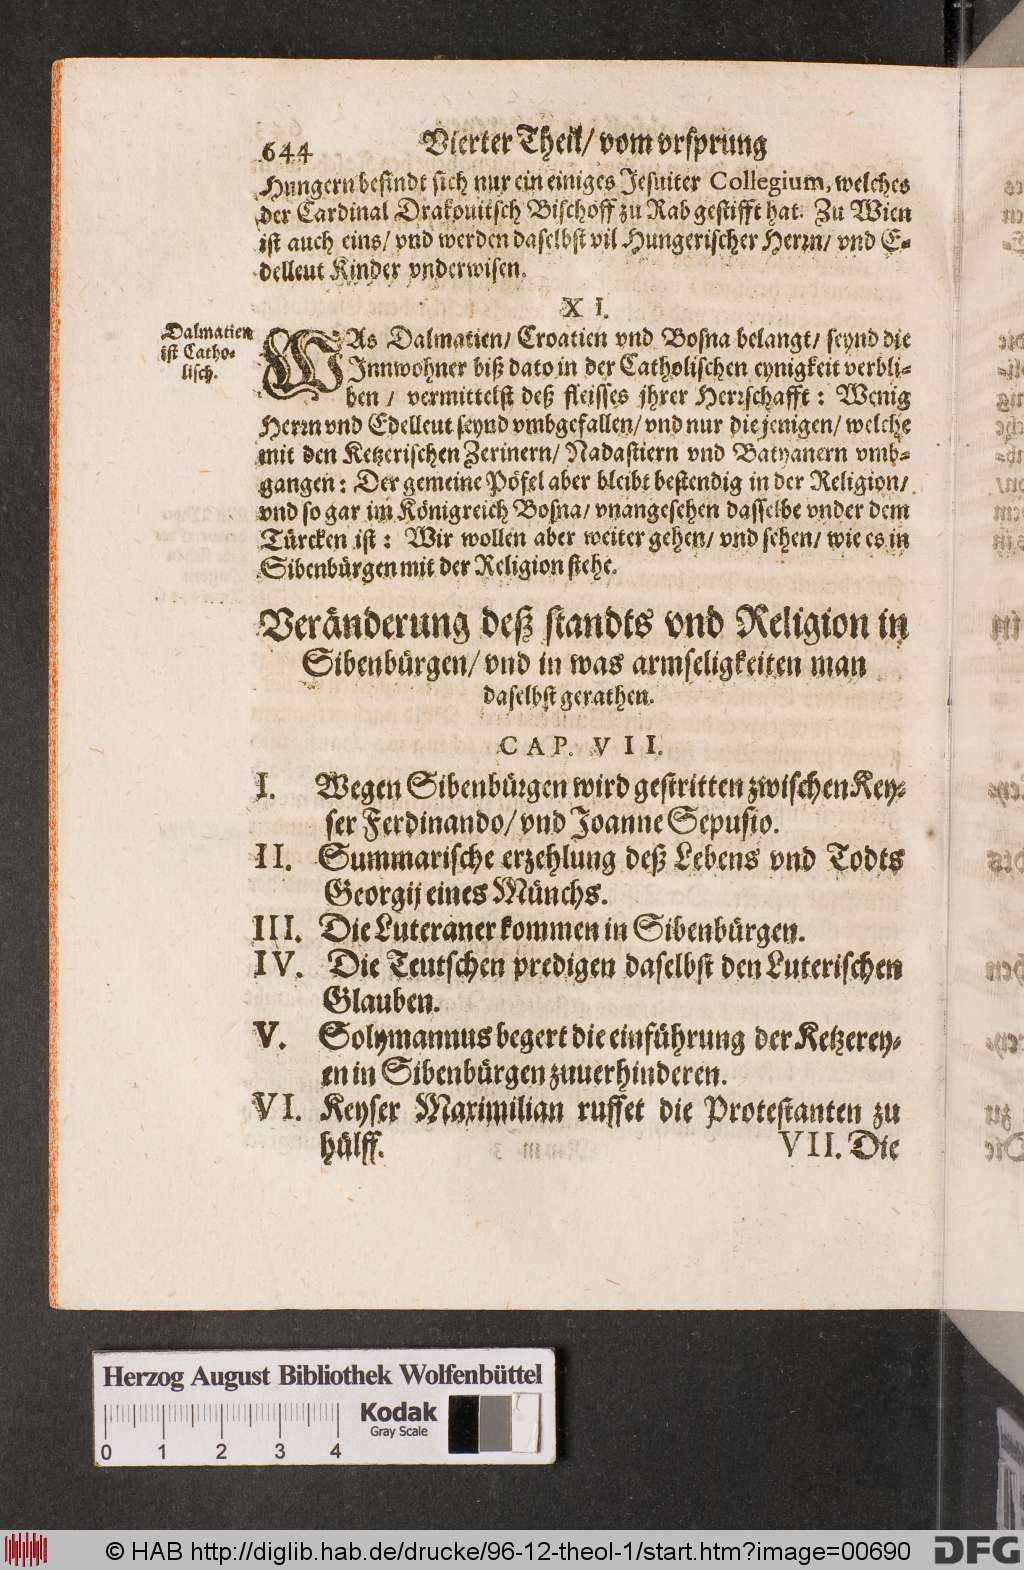 644 Vierter Theil/ vom vrsprung
Hungern befindt sich nur ein einiges Jesuiter Collegium, welches
der Cardinal Drakouitsch Bischoff zu Rab gestifft hat. Zu Wien
ist auch eins/ vnd werden daselbst vil Hungerischer Herrn/ vnd E-
delleut Kinder vnderwisen.
XI.
Dalmatien
ist Catho-
lisch.
WAs Dalmatien/ Croatien vnd Bosna belangt/ seynd die
Innwohner biß dato in der Catholischen eynigkeit verbli-
ben / vermittelst deß fleisses jhrer Herrschafft: Wenig
Herrn vnd Edelleut seynd vmbgefallen/ vnd nur die jenigen/ welche
mit den Ketzerischen Zerinern/ Nadastiern vnd Batyanern vmb-
gangen: Der gemeine Pöfel aber bleibt bestendig in der Religion/
vnd so gar im Königreich Bosna/ vnangesehen dasselbe vnder dem
Türcken ist: Wir wollen aber weiter gehen/ vnd sehen/ wie es in
Sibenbürgen mit der Religion stehe.
Veränderung deß standts vnd Religion in
Sibenbürgen/ vnd in was armseligkeiten man
daselbst gerathen.
CAP. VII.
I. Wegen Sibenbürgen wird gestritten zwischen Key-
ser Ferdinando/ vnd Joanne Sepusio.
II. Summarische erzehlung deß Lebens vnd Todts
Georgij eines Münchs.
III. Die Luteraner kommen in Sibenbürgen.
IV. Die Teutschen predigen daselbst den Luterischen
Glauben.
V. Solymannus begert die einführung der Ketzerey-
en in Sibenbürgen zuuerhinderen.
VI. Keyser Maximilian ruffet die Protestanten zu
hülff. VII. Die
Herzog August Bibliothek Wolfenbüttel
Kodak
Gray Scale
0 1 2 3 4
© HAB http://diglib.hab.de/drucke/96-12-theol-1/start.htm?image=00690
DFG